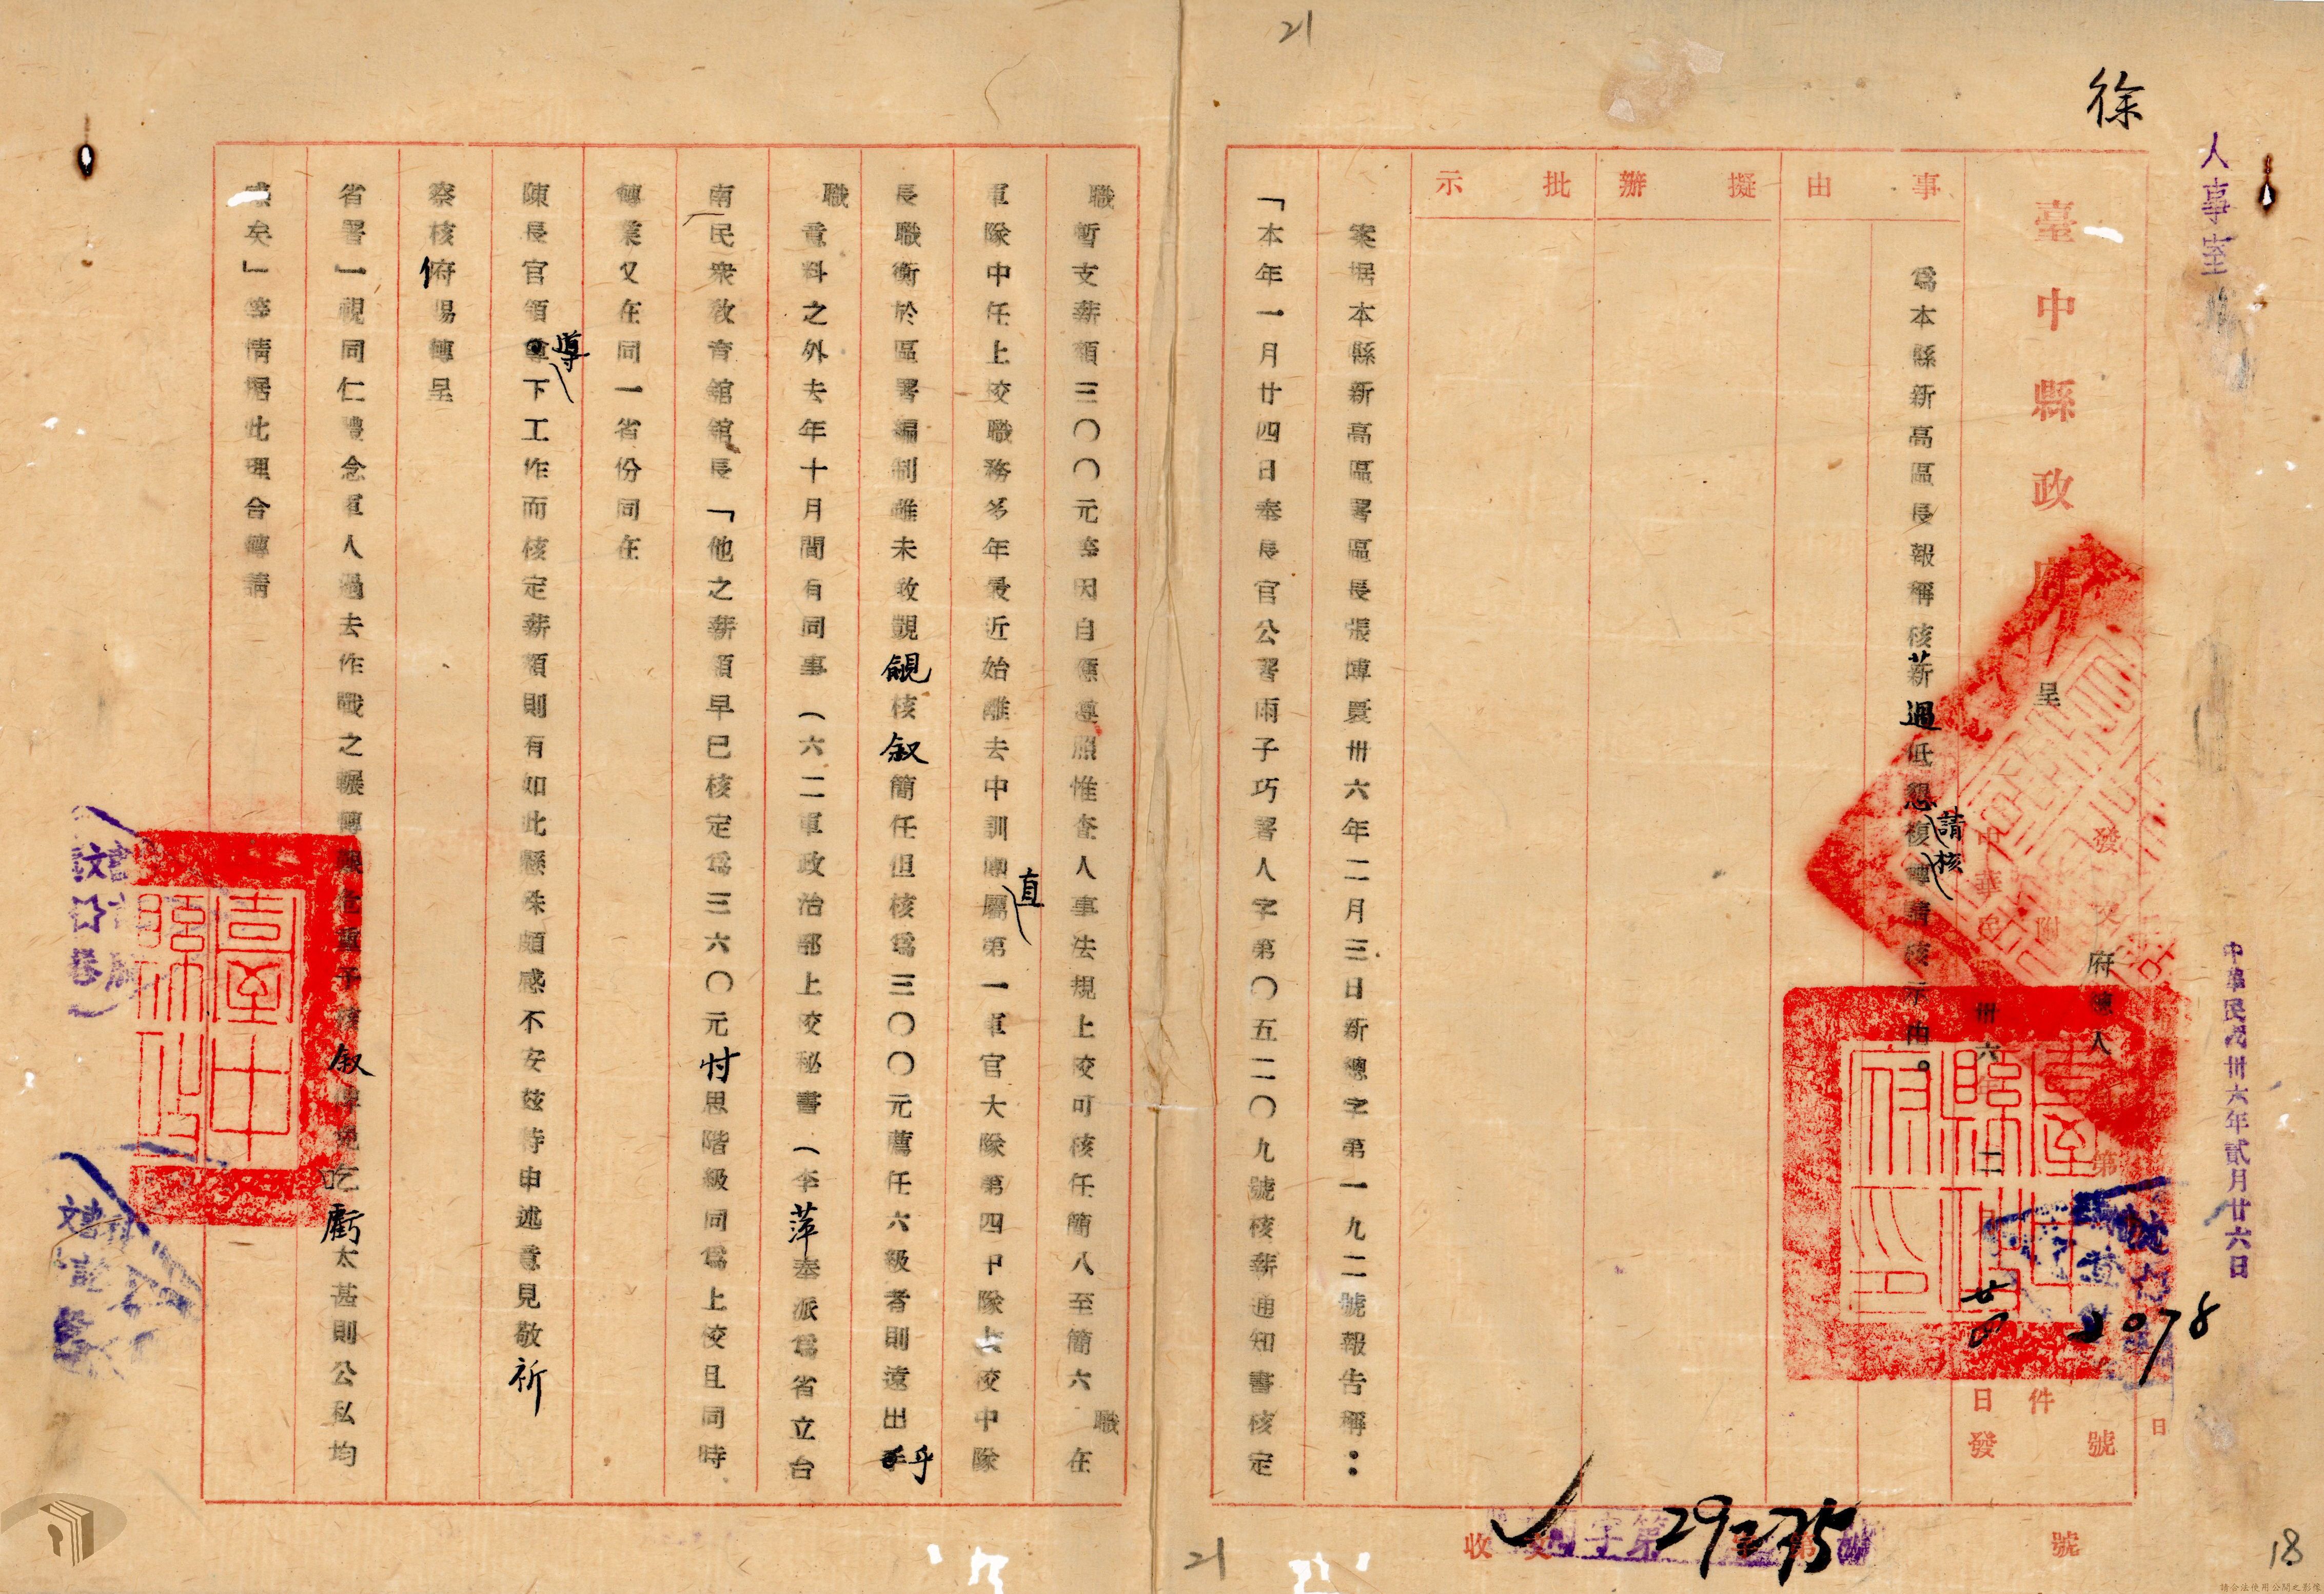 21
徐
人事室
中華民國卅六年貳月廿六日
臺中縣政府
呈
發文
府
人
第
號
日
2078
附
件
中華民
卅六年二月廿四日發
事由
擬辦
批示
為本縣新高區長報稱核薪過低懇請核復轉請核示由。
案据本縣新高區署區長張
卅六年二月三日新總字第一九二號報告稱：
「本年一月廿四日奉長官公署雨子巧署人字第〇五二〇九號核薪通知書核定
職暫支薪額三〇〇元等因自應遵照惟查人事法規上校可核任簡八至簡六職在
軍隊中任上校職務多年最近始離去中訓團直屬第一軍官大隊第四中隊上校中隊
長職衡於區署編制雖未敢覬覦核叙簡任但核為三〇〇元薦任六級者則遠出乎
職意料之外去年十月間有同事（六二軍政治部上校秘書（李萍奉派為省立台
南民衆教育舘舘長「他之薪額早已核定為三六〇元忖思階級同為上校且同時
轉業又在同一省份同在
陳長官領導下工作而核定薪額則有如此懸殊頗感不安玆特申述意見敬祈
察核俯賜轉呈
省署一視同仁體念軍人過去作戰之輾轉
予核叙
免吃虧太甚則公私均
感矣」等情据此理合轉請
臺中縣政府印
收文
字第
29275
號
21
18
請合法使用公開之影像